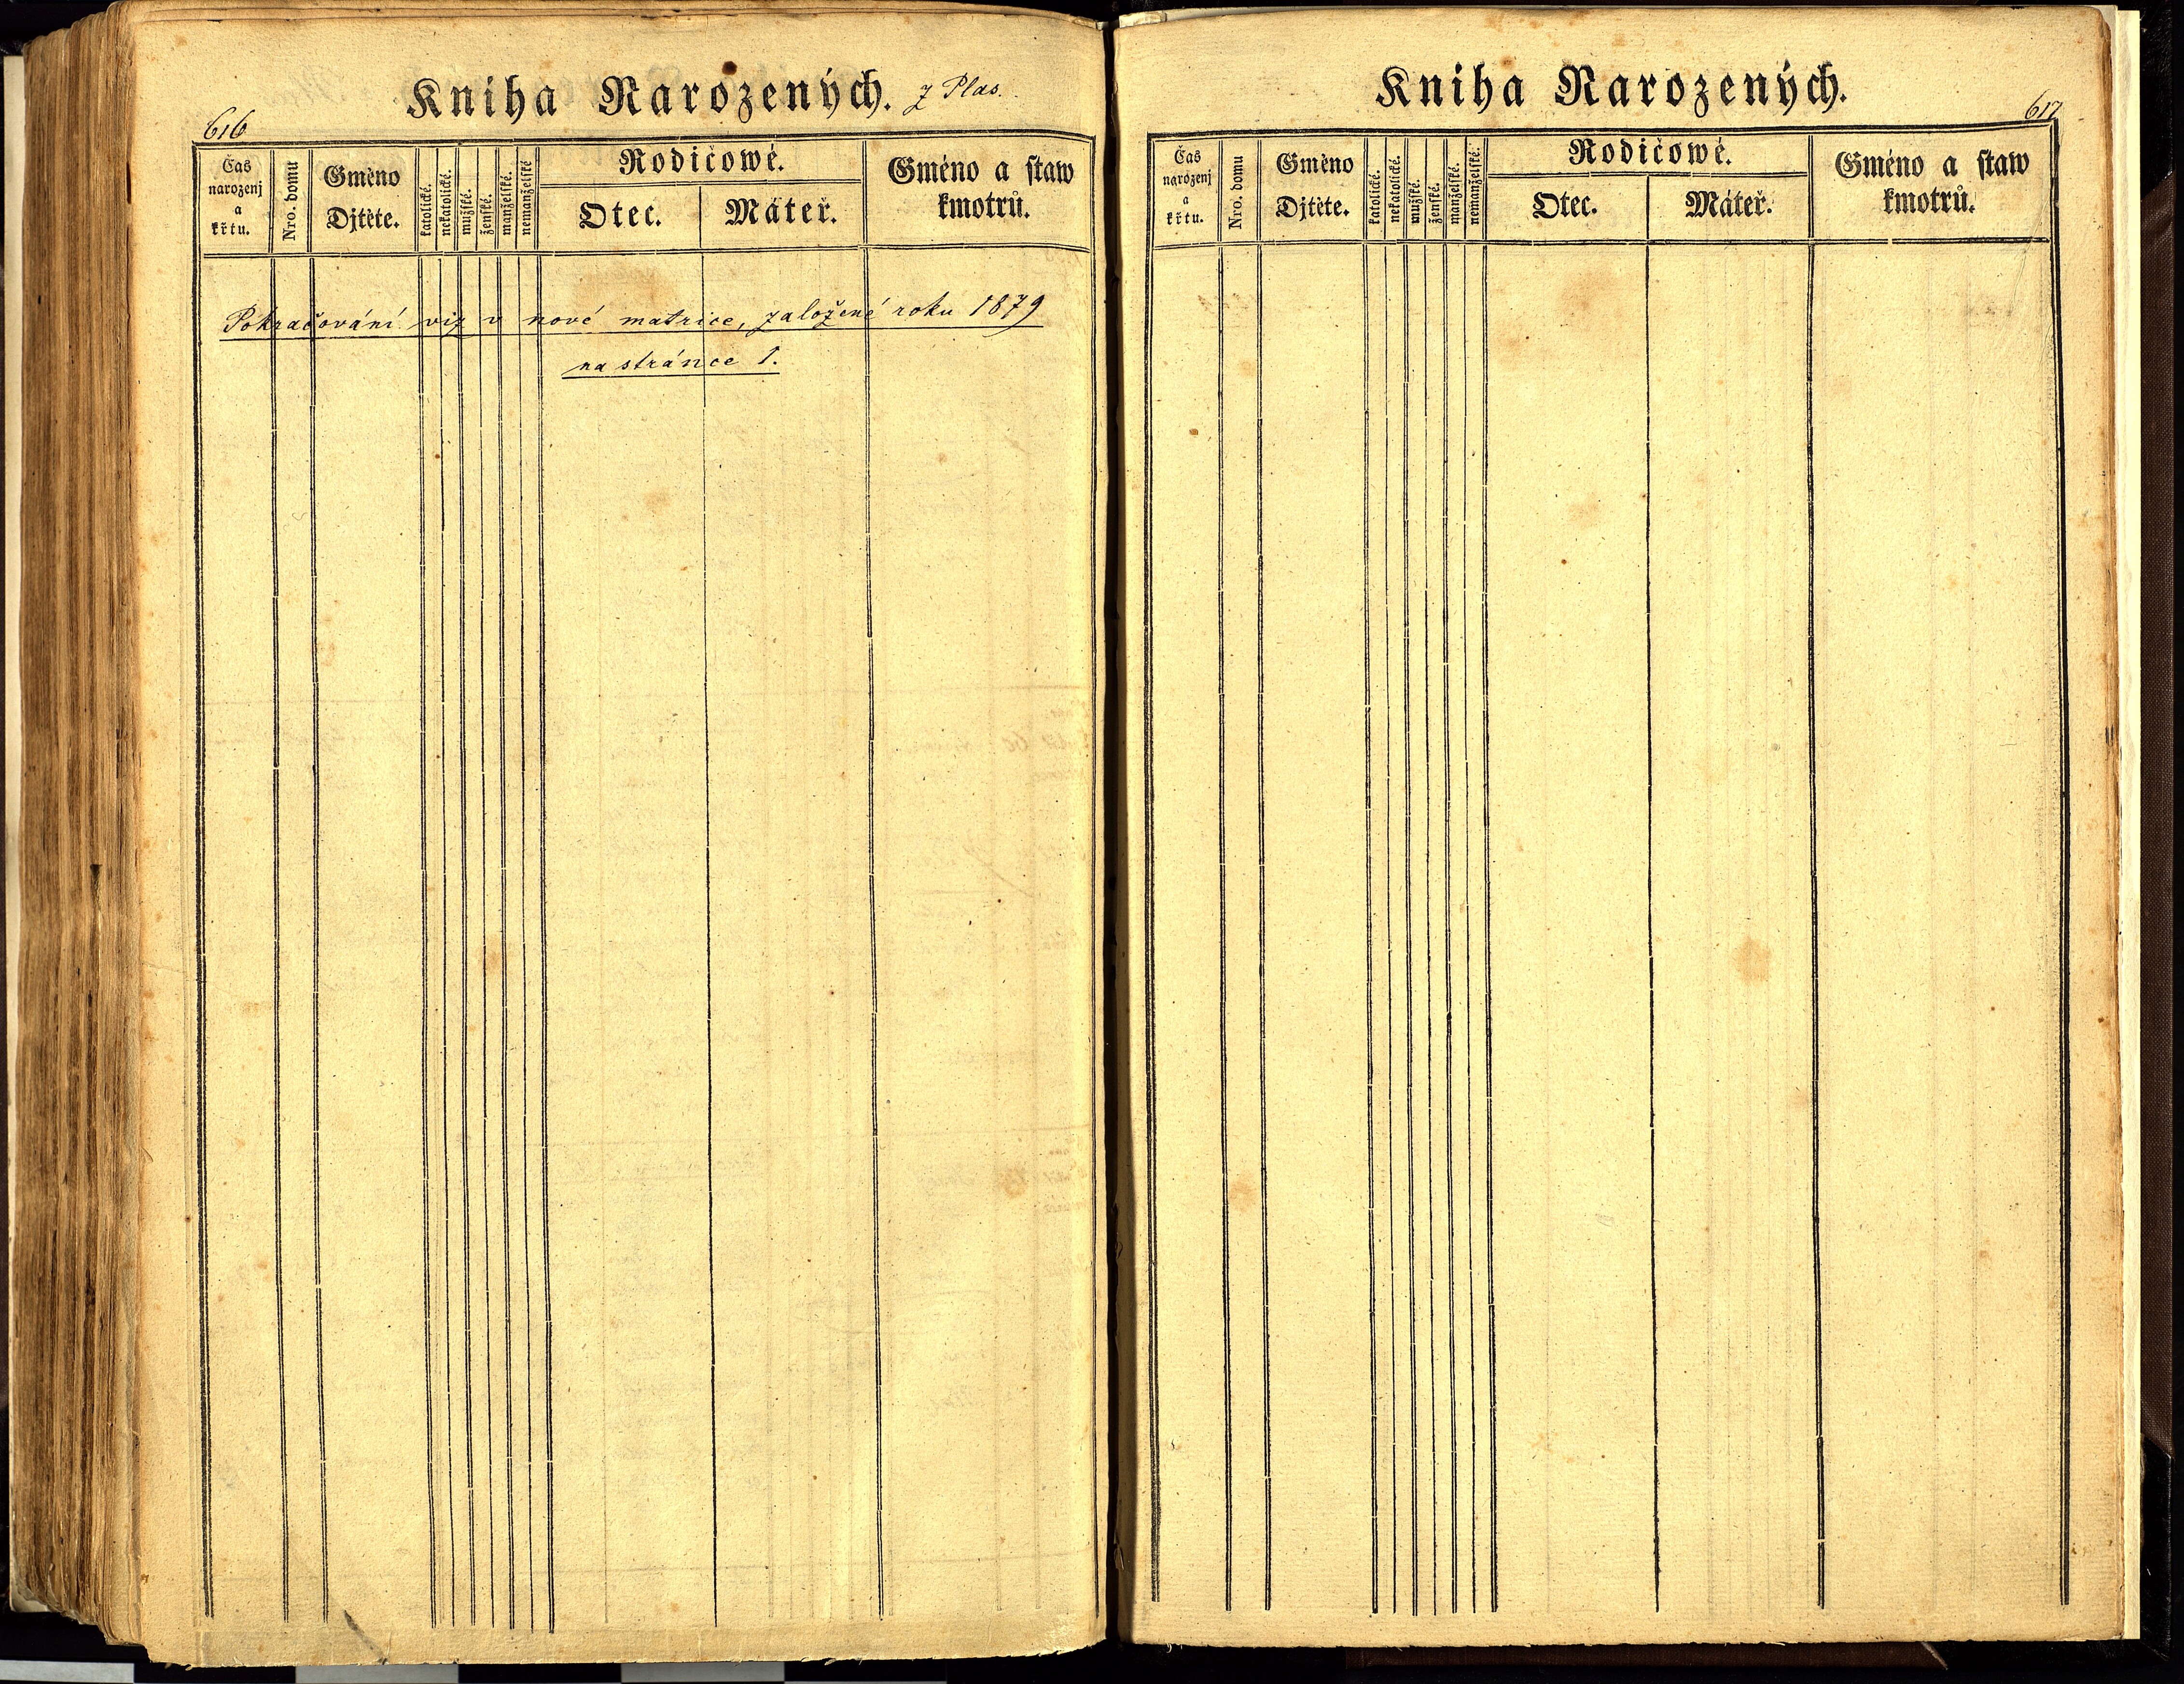 616
Kniha Narozených. z Plas.
Čas narozenj a křtu.
Nro. domu
Gméno Djtěte.
katolické.
nekatolické.
mužské.
ženské.
manželské.
nemanželské
Rodičowé.
Otec.
Máteř.
Gméno a staw kmotrů.
Pokračování viz v nové matrice, založené roku 1879
na stránce 1.
Kniha Narozených.
617
Čas narozenj a křtu.
Nro. domu
Gméno Djtěte.
katolické.
nekatolické.
mužské.
ženské.
manželské.
nemanželské.
Rodičowé.
Otec.
Máteř.
Gméno a staw kmotrů.